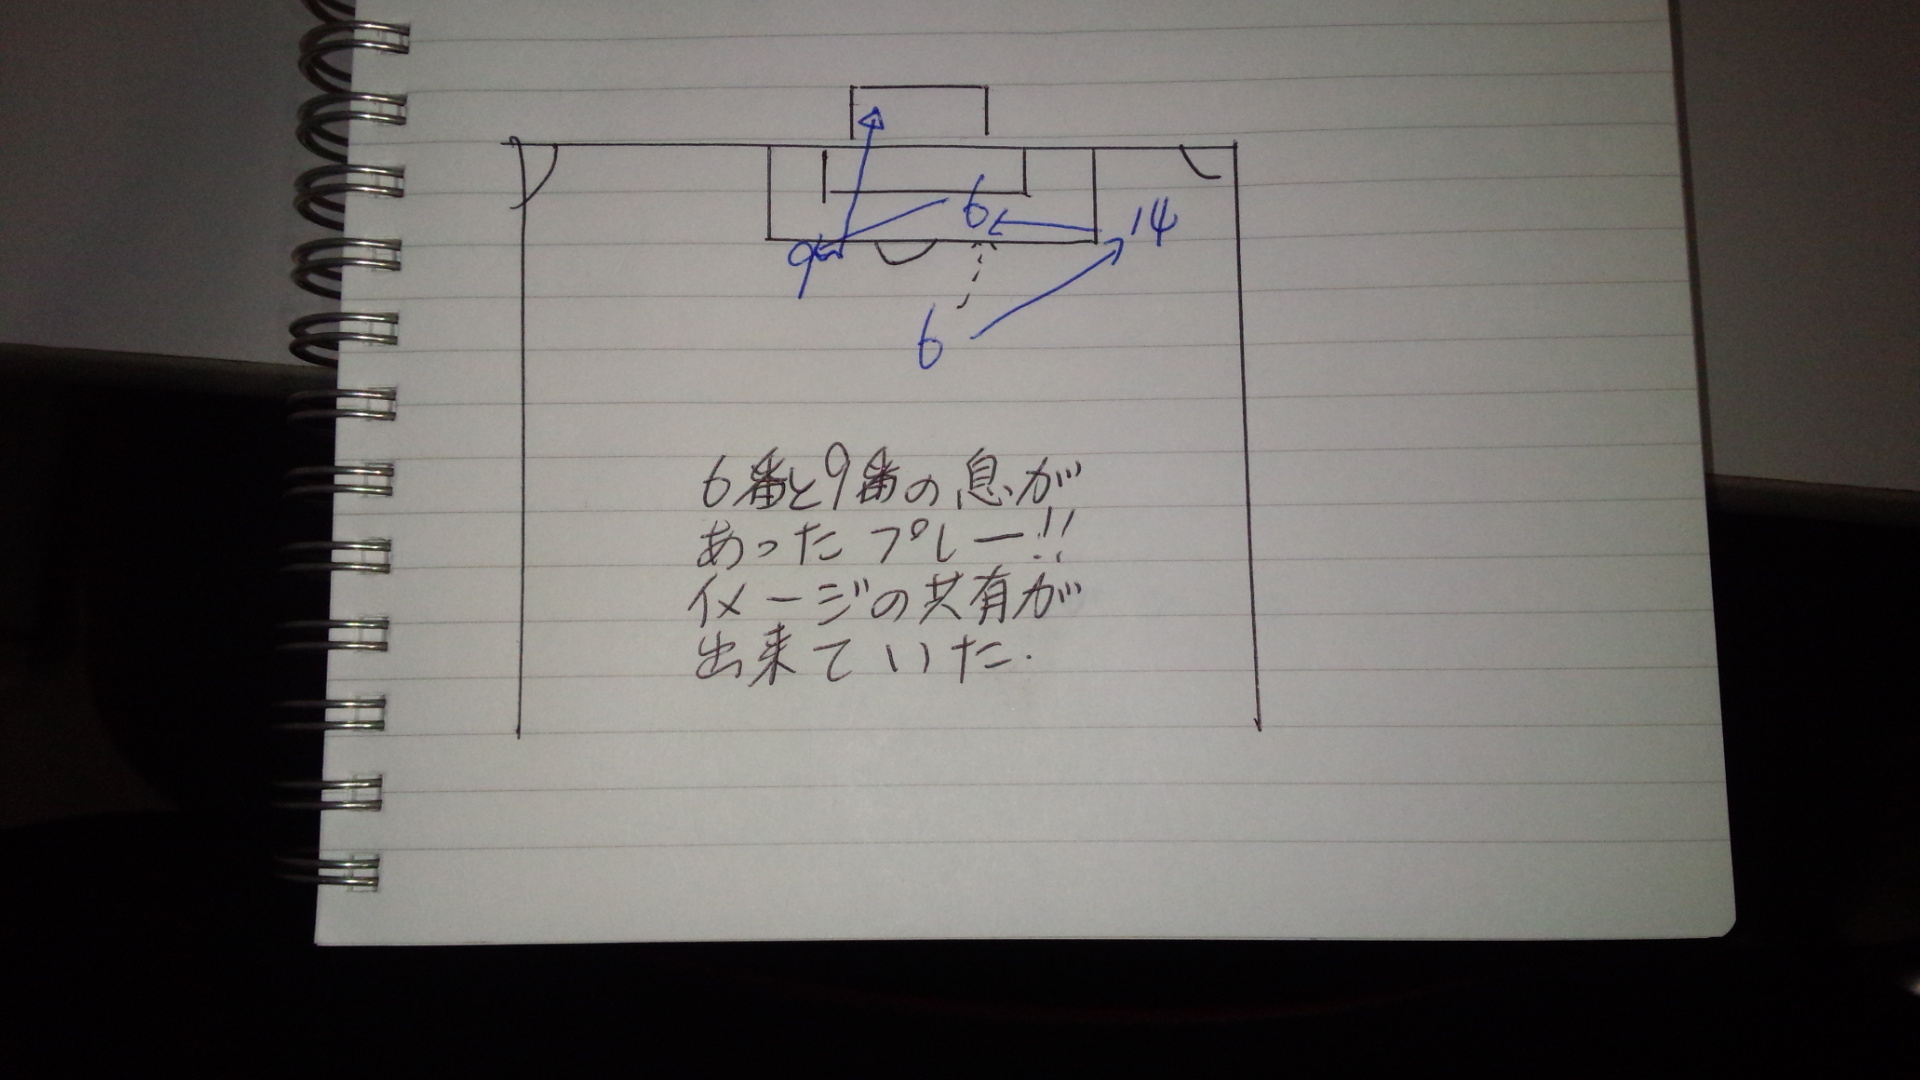 6 14
9
6
6番と9番の息が
あったプレー!!
イメージの共有が
出来ていた.